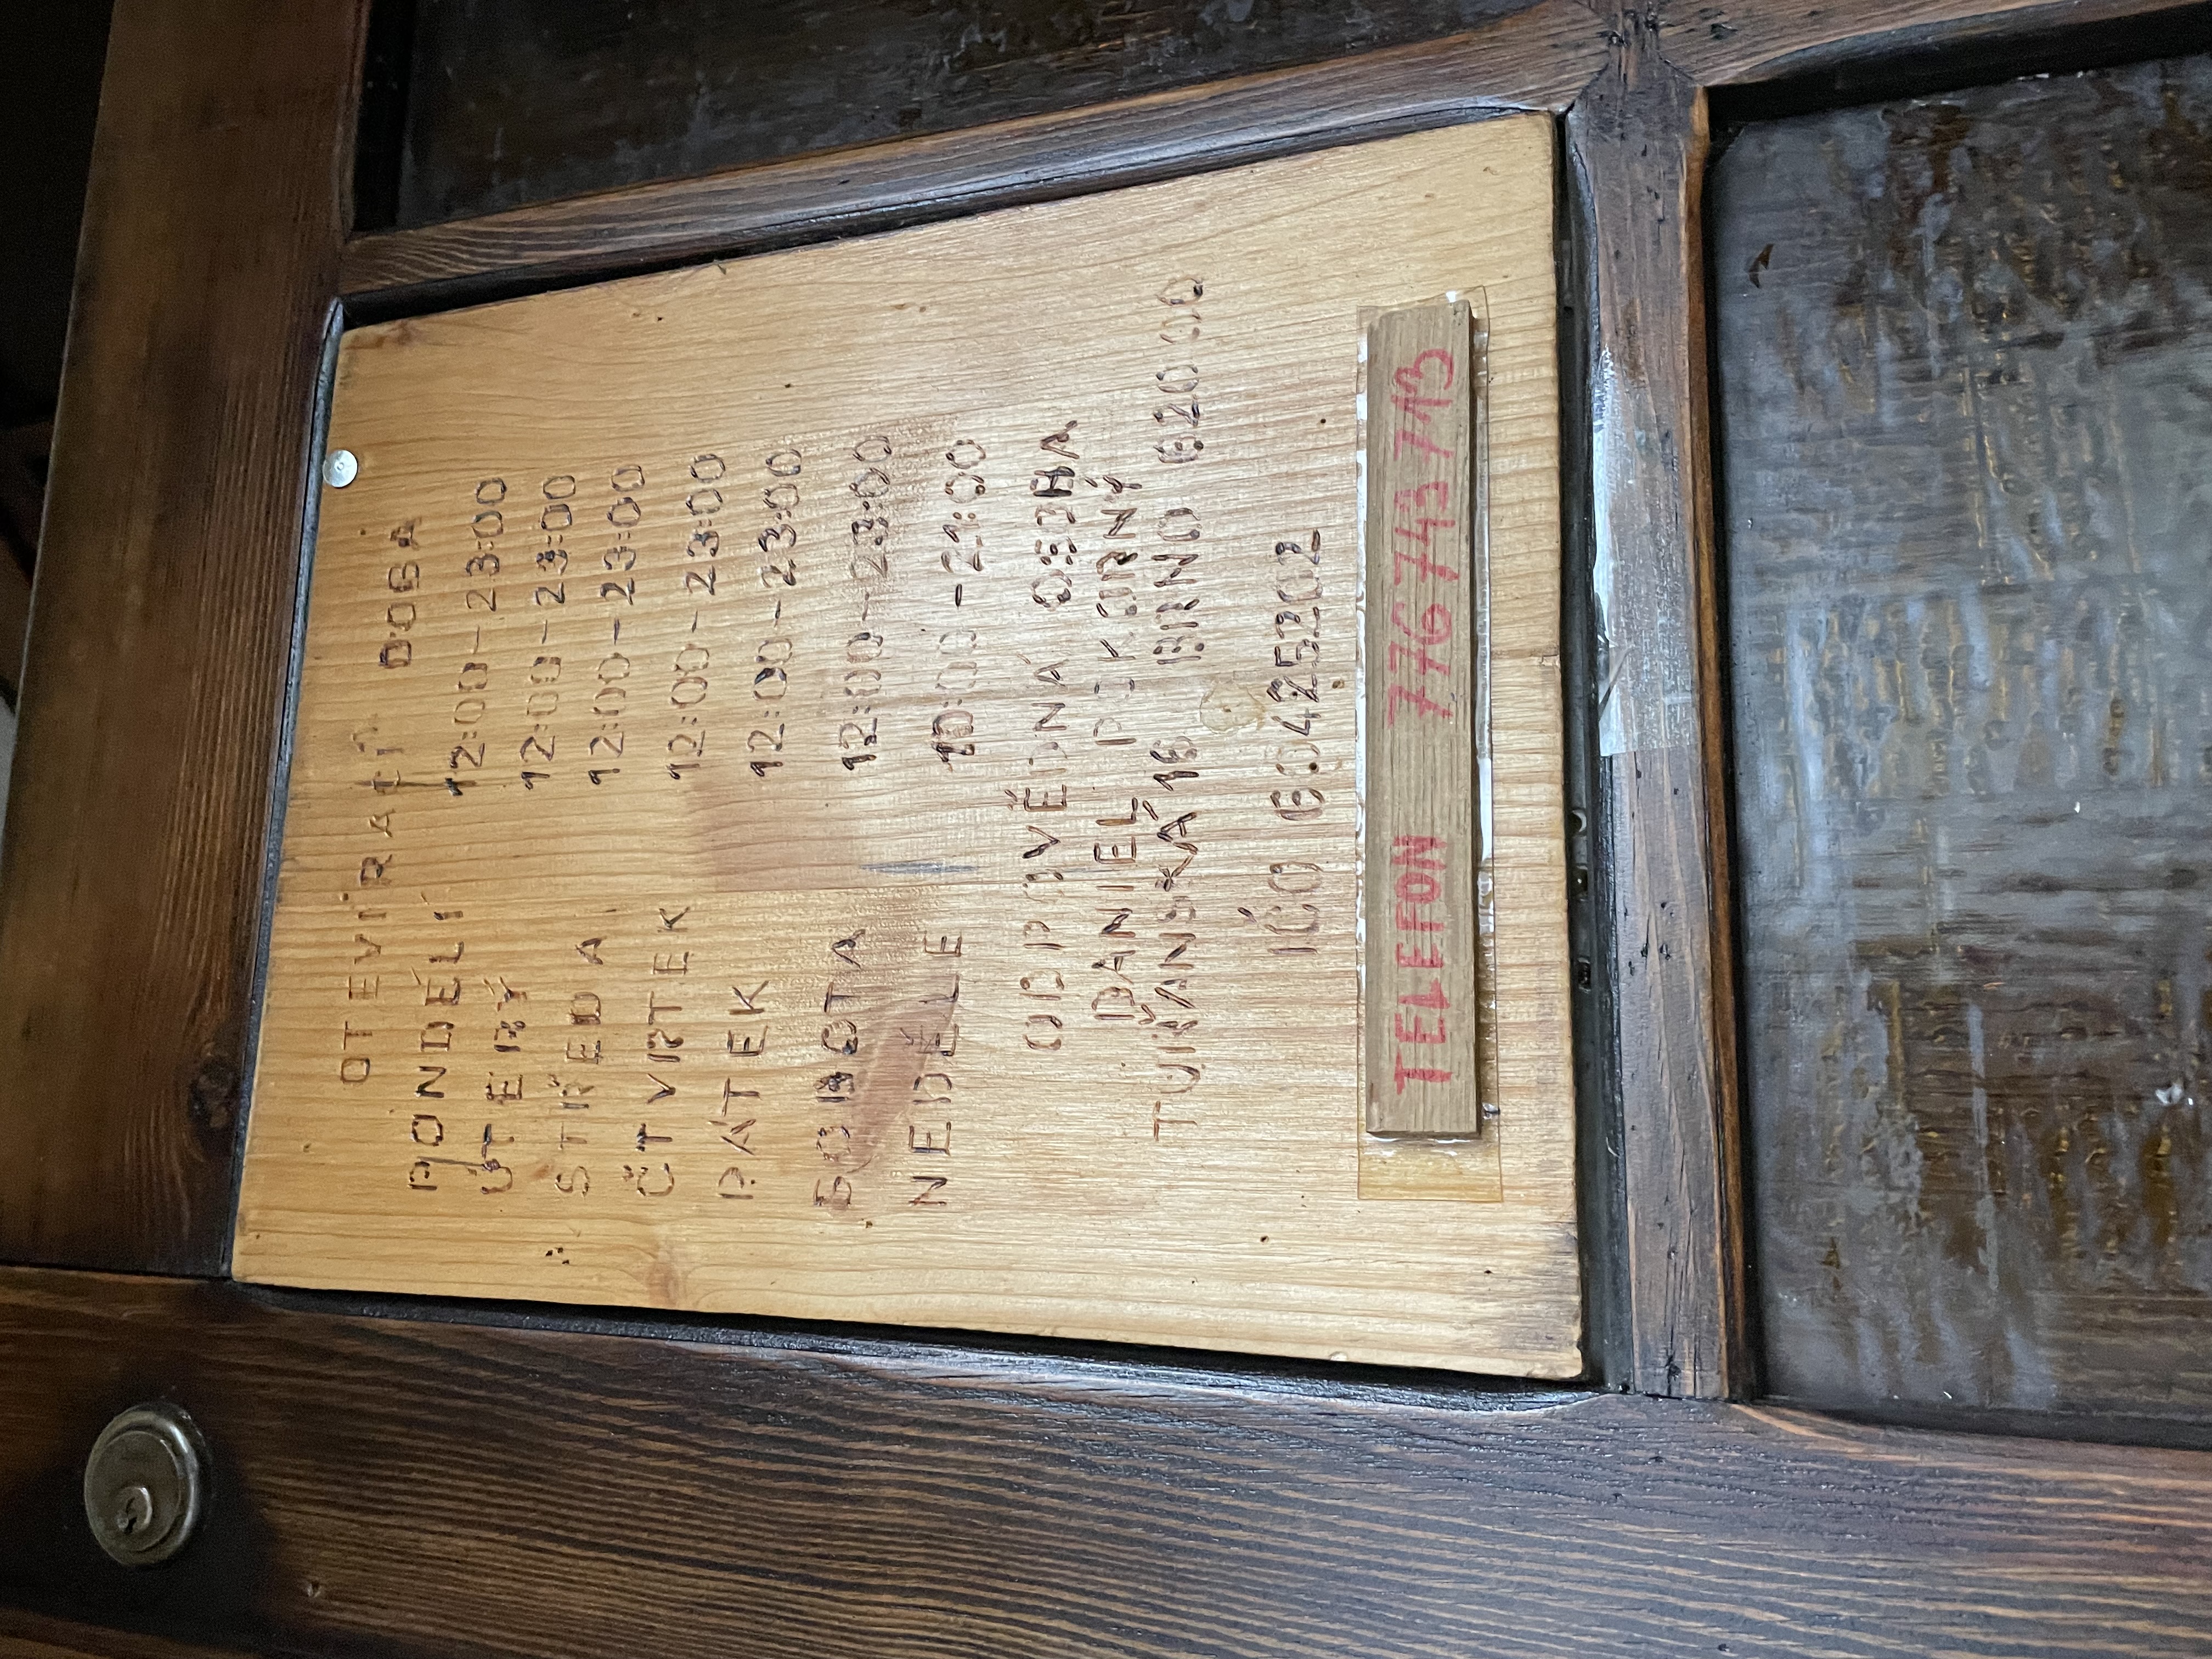 OTEVÍRACÍ DOBA
PONDĚLÍ 12:00-23:00
ÚTERÝ 12:00-23:00
STŘEDA 12:00-23:00
ČTVRTEK 12:00-23:00
PÁTEK 12:00-23:00
SOBOTA 12:00-23:00
NEDĚLE 10:00-21:00
ODPOVĚDNÁ OSOBA
DANIEL POKORNÝ
TUŘANSKÁ 16 BRNO 620 00
IČO
TELEFON 776 743 713